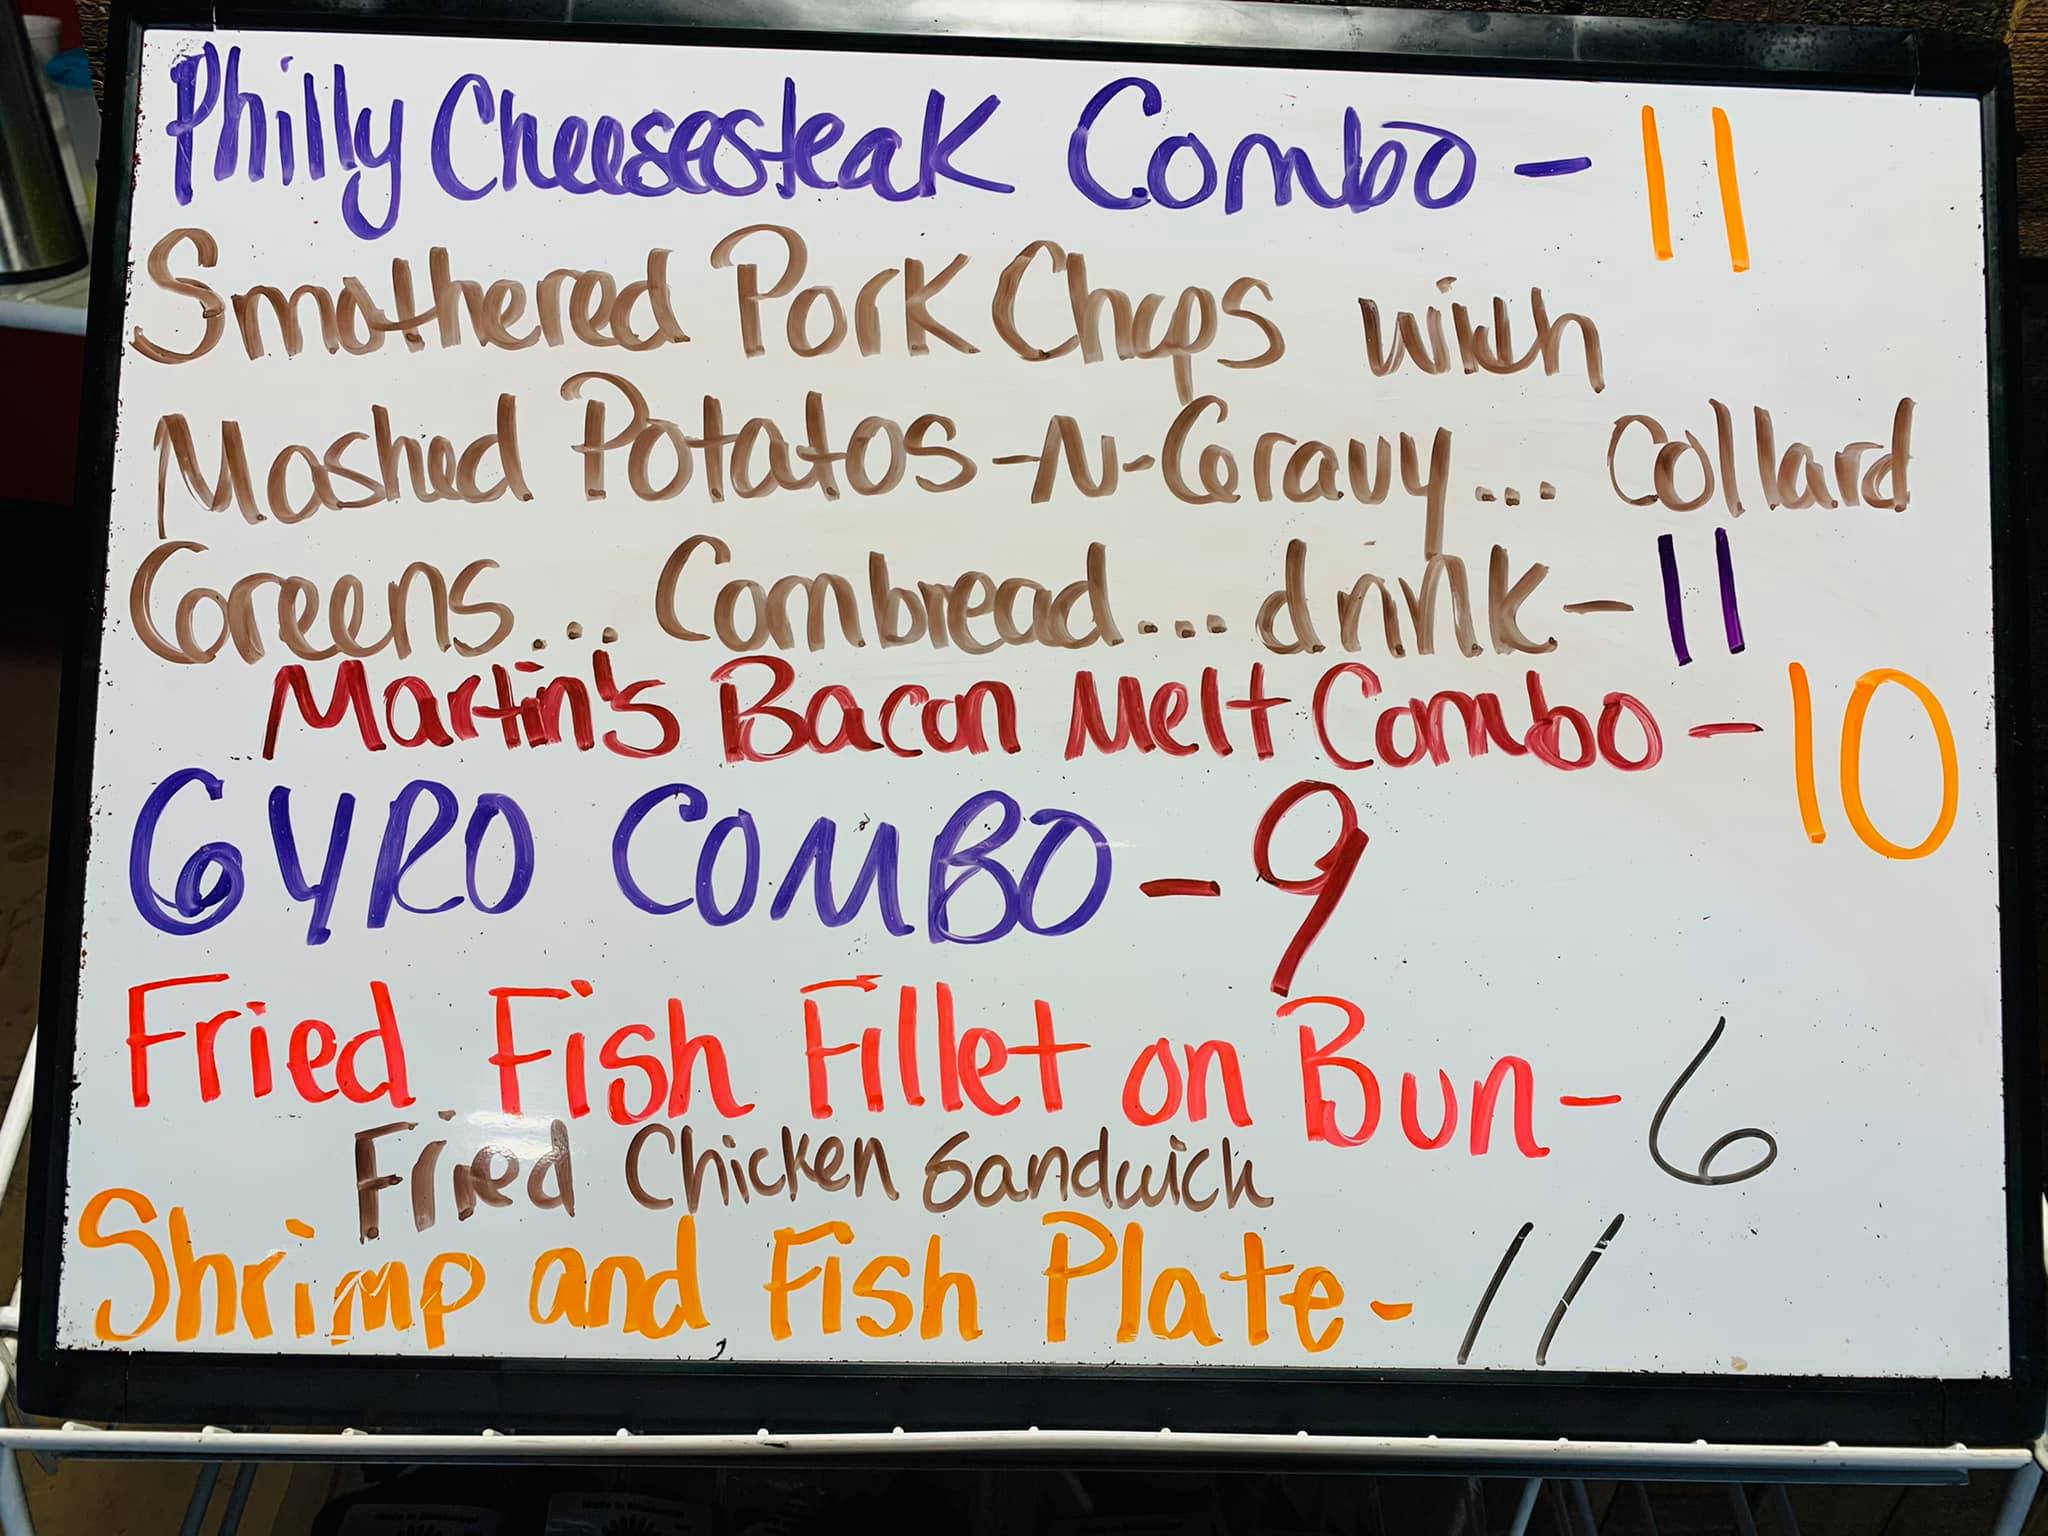 Philly Cheesesteak Combo - 11
Smothered Pork Chops with
Mashed Potatos -N- Gravy... Collard
Greens... Cornbread... drink - 11
Martin's Bacon Melt Combo - 10
GYRO COMBO - 9
Fried Fish Fillet on Bun - 6
Fried Chicken Sandwich
Shrimp and Fish Plate - 11